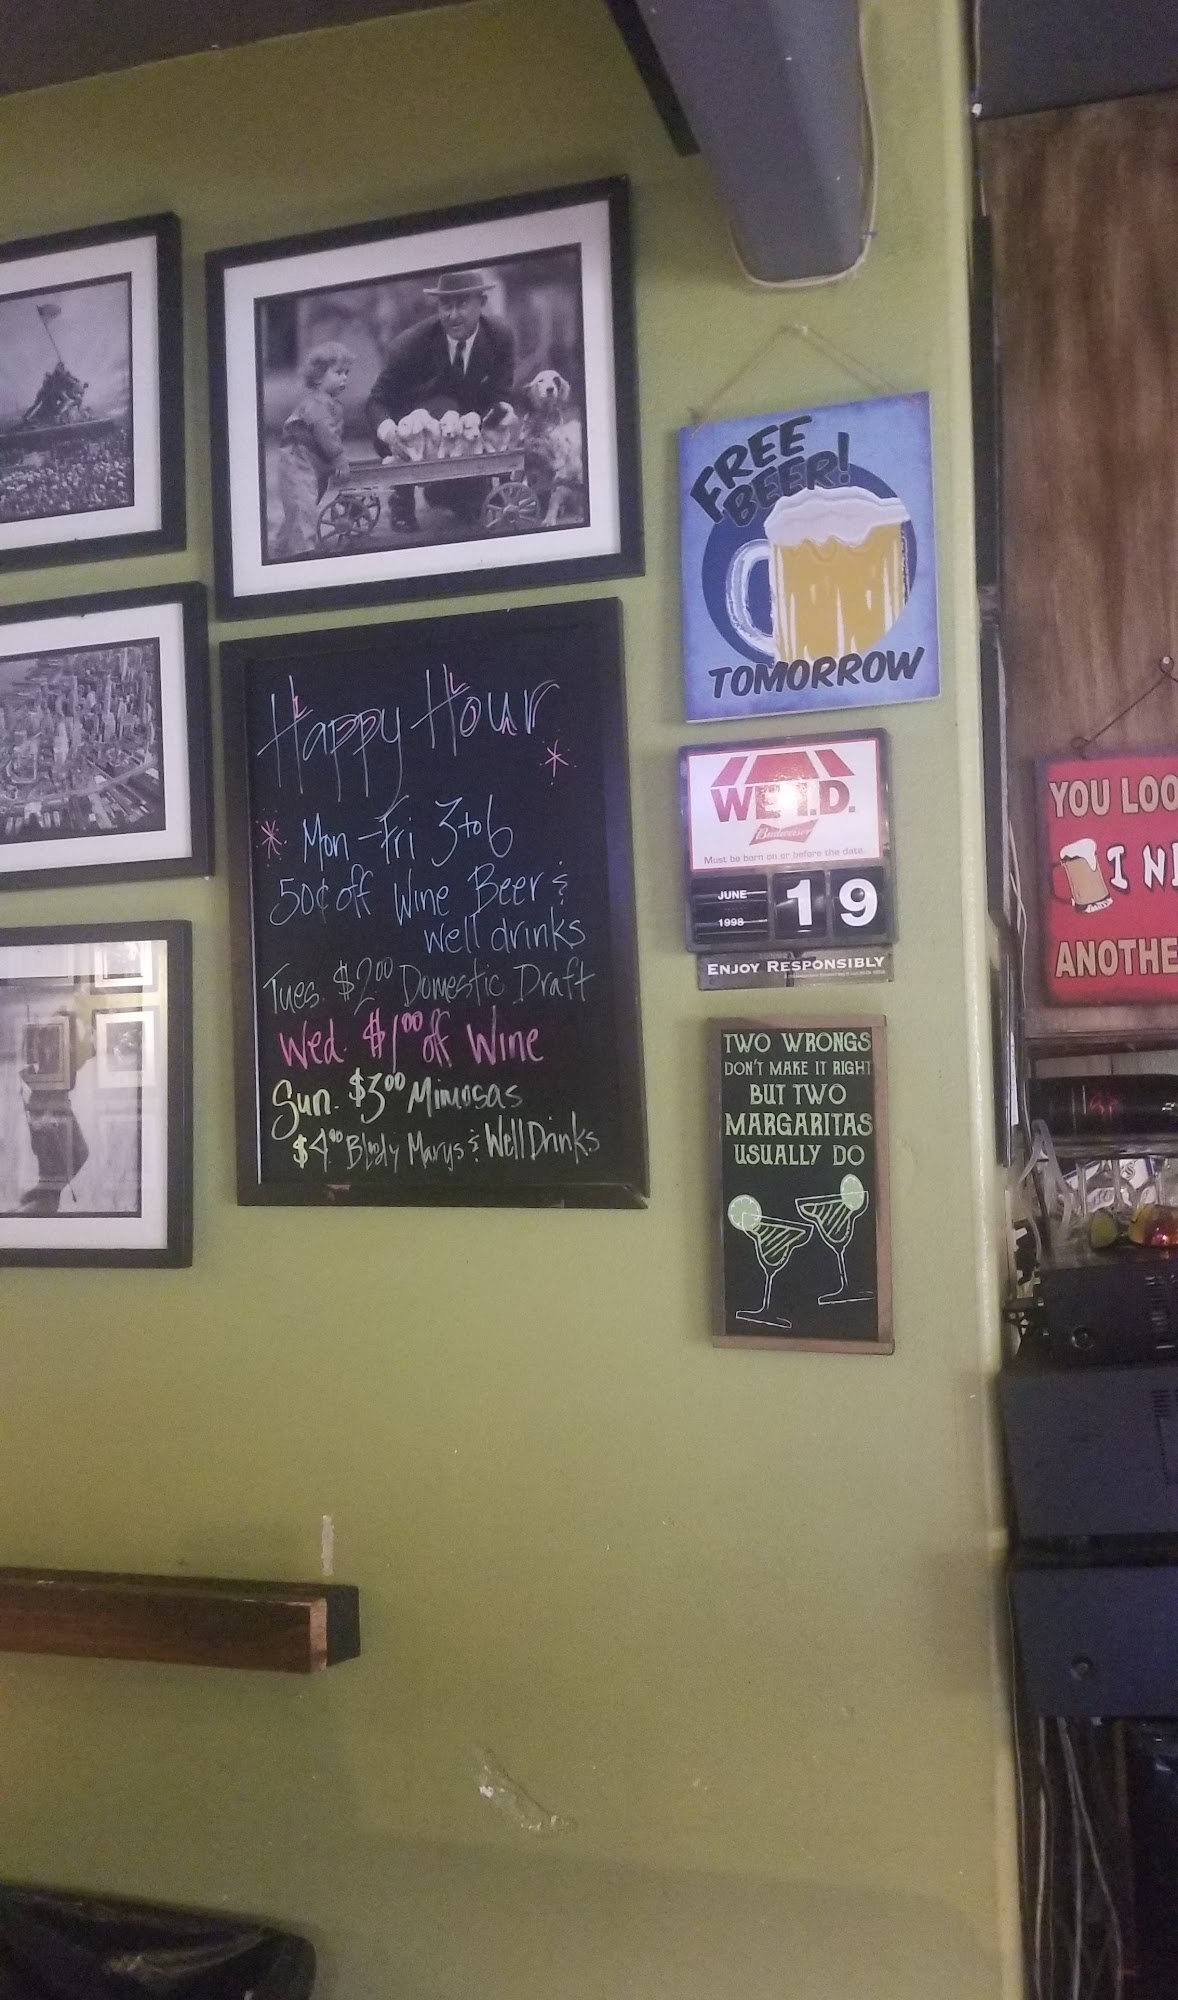 Happy Hour
Mon - Fri 3 to 6
50¢ off Wine Beer &
well drinks
Tues. $2.00 Domestic Draft
Wed. $1.00 off Wine
Sun. $3.00 Mimosas
$4.00 Bloody Marys & Well Drinks
FREE
BEER!
TOMORROW
WE I.D.
Budweiser
Must be born on or before the date.
JUNE
1998
19
ENJOY RESPONSIBLY
TWO WRONGS
DON'T MAKE IT RIGHT
BUT TWO
MARGARITAS
USUALLY DO
YOU LOO
I N
ANOTHE